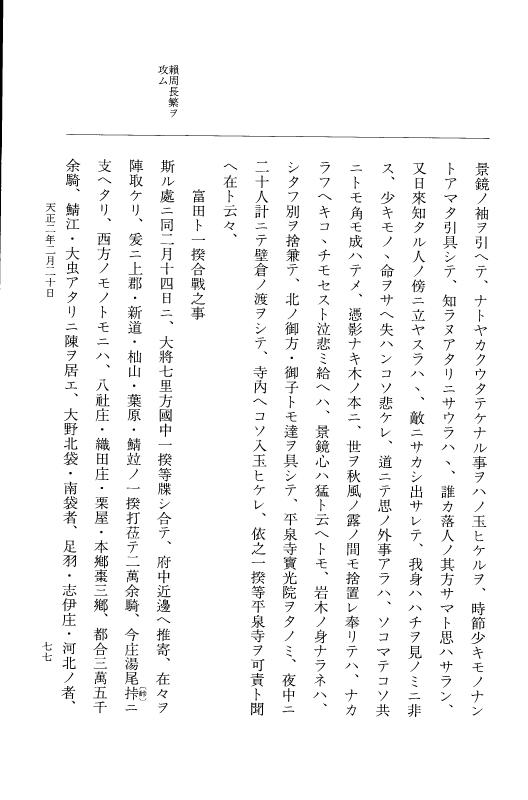 賴周長繁ヲ
攻ム
景鏡ノ袖ヲ引ヘテ、ナトヤカクウタテケナル事ヲハノ玉ヒケルヲ、時節少キモノナン
トアマタ引具シテ、知ラヌアタリニサウラハヽ、誰カ落人ノ其方サマト思ハサラン、
又日來知タル人ノ傍ニ立ヤスラハヽ、敵ニサカシ出サレテ、我身ハハチヲ見ノミニ非
ス、少キモノヽ命ヲサヘ失ハンコソ悲ケレ、道ニテ思ノ外事アラハ、ソコマテコソ共
ニトモ角モ成ハテメ、憑影ナキ木ノ本ニ、世ヲ秋風ノ露ノ間モ捨置レ奉リテハ、ナカ
ラフヘキコヽチモセスト泣悲ミ給ヘハ、景鏡心ハ猛ト云ヘトモ、岩木ノ身ナラネハ、
シタフ別ヲ捨兼テ、北ノ御方・御子トモ達ヲ具シテ、平泉寺寶光院ヲタノミ、夜中ニ
二十人計ニテ壁倉ノ渡ヲシテ、寺内ヘコソ入玉ヒケレ、依之一揆等平泉寺ヲ可責ト聞
ヘ在ト云々、
富田ト一揆合戰之事
斯ル處ニ同二月十四日ニ、大將七里方國中一揆等牒シ合テ、府中近邊ヘ推寄、在々ヲ
陣取ケリ、爰ニ上郡・新道・杣山・葉原・鯖竝ノ一揆打莅テ二萬余騎、今庄湯尾挊（峠）ニ
支ヘタリ、西方ノモノトモニハ、八社庄・織田庄・栗屋・本鄕棗三鄕、都合三萬五千
余騎、鯖江・大虫アタリニ陳ヲ居エ、大野北袋・南袋者、足羽・志伊庄・河北ノ者、
天正二年二月二十日
七七